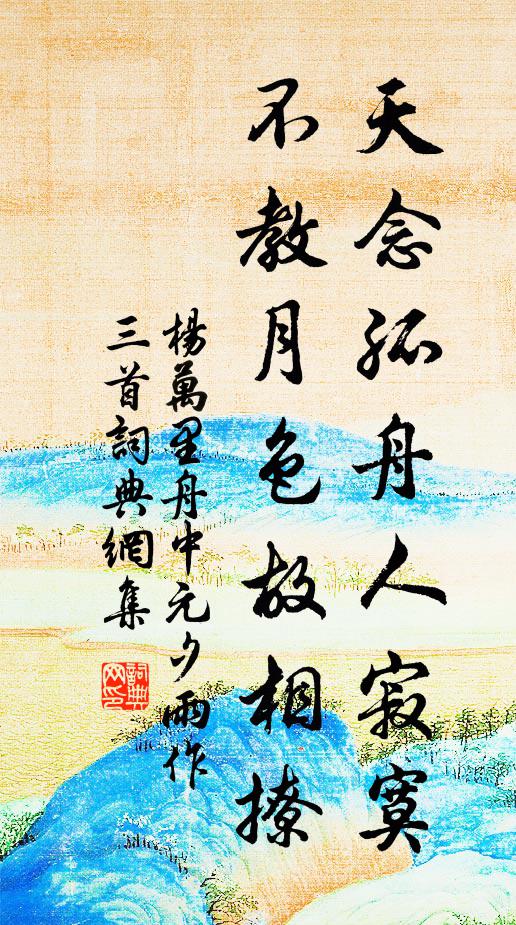 天念孤舟人寂寞
不教月色故相撩
楊萬里舟中元夕雨作
三首詞典網集
詞典
网印